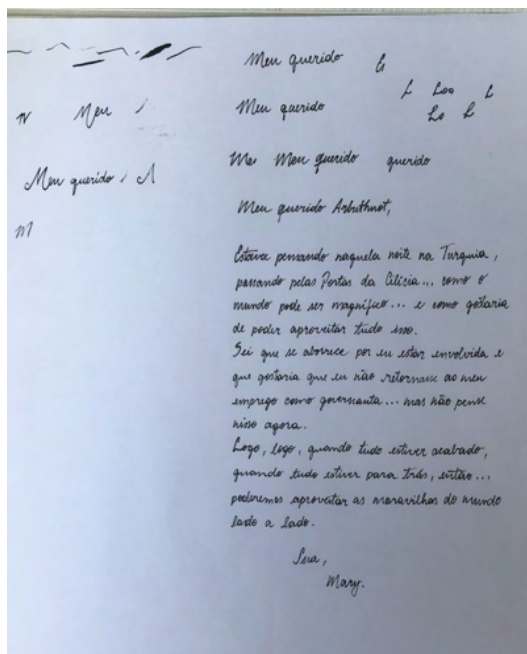 Meu querido
Meu
Meu querido
Meu querido
Meu querido querido
Meu querido Arbuthnot,
Estava pensando naquela noite na Turquia,
passando pelas Portas da Cilícia... como o
mundo pode ser magnífico... e como gostaria
de poder aproveitar tudo isso.
Sei que se aborrece por eu estar envolvida e
que gostaria que eu não retornasse ao meu
emprego como governanta... mas não pense
nisso agora.
Logo, logo, quando tudo estiver acabado,
quando tudo estiver para trás, então...
poderemos aproveitar as maravilhas do mundo
lado a lado.
Sua,
Mary.